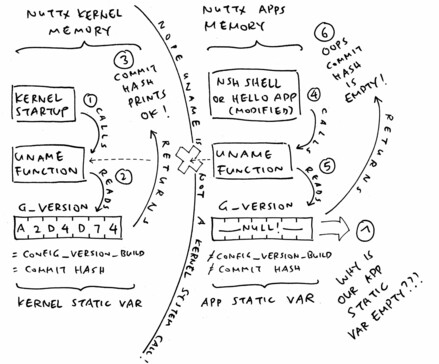 NUTTX KERNEL
MEMORY
KERNEL
STARTUP
① CALLS
UNAME
FUNCTION
② READS
G_VERSION
A 2 D 4 D 7 4
= CONFIG_VERSION_BUILD
= COMMIT HASH
KERNEL STATIC VAR
③
COMMIT
HASH
PRINTS
OK!
RETURNS
NOPE UNAME IS NOT A KERNEL SYSTEM CALL!
NUTTX APPS
MEMORY
NSH SHELL
OR HELLO APP
(MODIFIED)
④ CALLS
UNAME
FUNCTION
⑤ READS
G_VERSION
NULL!
≠ CONFIG_VERSION_BUILD
≠ COMMIT HASH
APP STATIC VAR
⑥
OOPS
COMMIT
HASH
IS
EMPTY!
RETURNS
⑦
WHY IS
OUR APP
STATIC
VAR EMPTY???